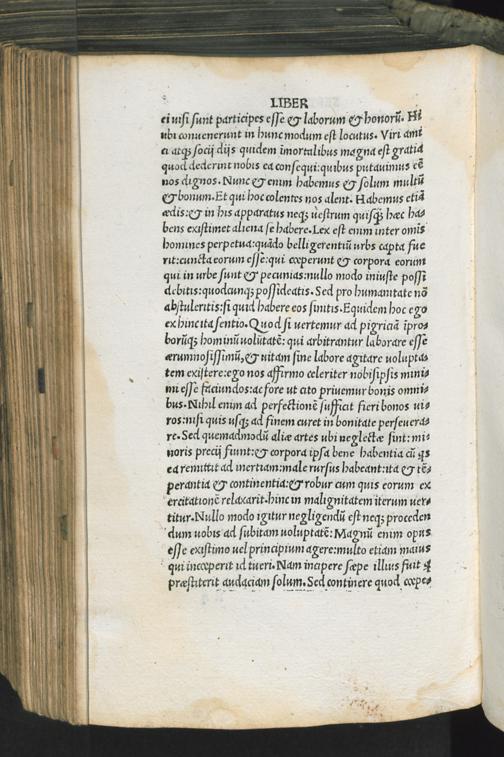 LIBER
ei uisi sunt participes esse & laborum & honorū. Hi
ubi conuenerunt in hunc modum est locutus. Viri ami
ci atqꝫ socij dijs quidem ĩmortalibus magna est gratia
quod dederint nobis ea consequi: quibus putauimus eē
nos dignos. Nunc & enim habemus & solum multū
& bonum. Et qui hoc colentes nos alent. Habemus etiā
ædis: & in his apparatus neqꝫ uestrum quisqꝫ hæc ha⸗
bens existimet aliena se habere. Lex est enim inter omīs
homines perpetua: quādo belligerentiū urbs capta fue
rit: cuncta eorum esse: qui cœperunt & corpora eorum
qui in urbe sunt & pecunias: nullo modo iniuste possi
debitis: quodcunqꝫ possideatis. Sed pro humanitate nō
abstuleritis: si quid habere eos sinitis. Equidem hoc ego
ex hinc ita sentio. Quod si uertemur ad pigriciā ĩpro⸗
borūqꝫ hominū uolūtatē: qui arbitrantur laborare esse
ærumnosissimū, & uitam sine labore agitare uolupta⸗
tem existere: ego nos affirmo celeriter nobisipsis mini⸗
mi esse faciundos: ac fore ut cito priuemur bonis omni⸗
bus. Nihil enim ad perfectionē sufficit fieri bonos ui⸗
ros: nisi quis usqꝫ ad finem curet in bonitate perseuera⸗
re. Sed quemadmodū aliæ artes ubi neglectæ sint: mi⸗
noris precij fiunt: & corpora ipsa bene habentia cū qs
ea remittit ad inertiam: male rursus habeant: ita & tē⸗
perantia & continentia: & robur cum quis eorum ex
ercitationē relaxarit. hinc in malignitatem iterum uer⸗
titur. Nullo modo igitur negligendū est neqꝫ proceden
dum uobis ad subitam uoluptatē: Magnū enim opus
esse existimo uel principium agere: multo etiam maius
qui inceperit id tueri. Nam incipere sæpe illius fuit ꝗ
præstiterit audaciam solum. Sed continere quod cœpe⸗